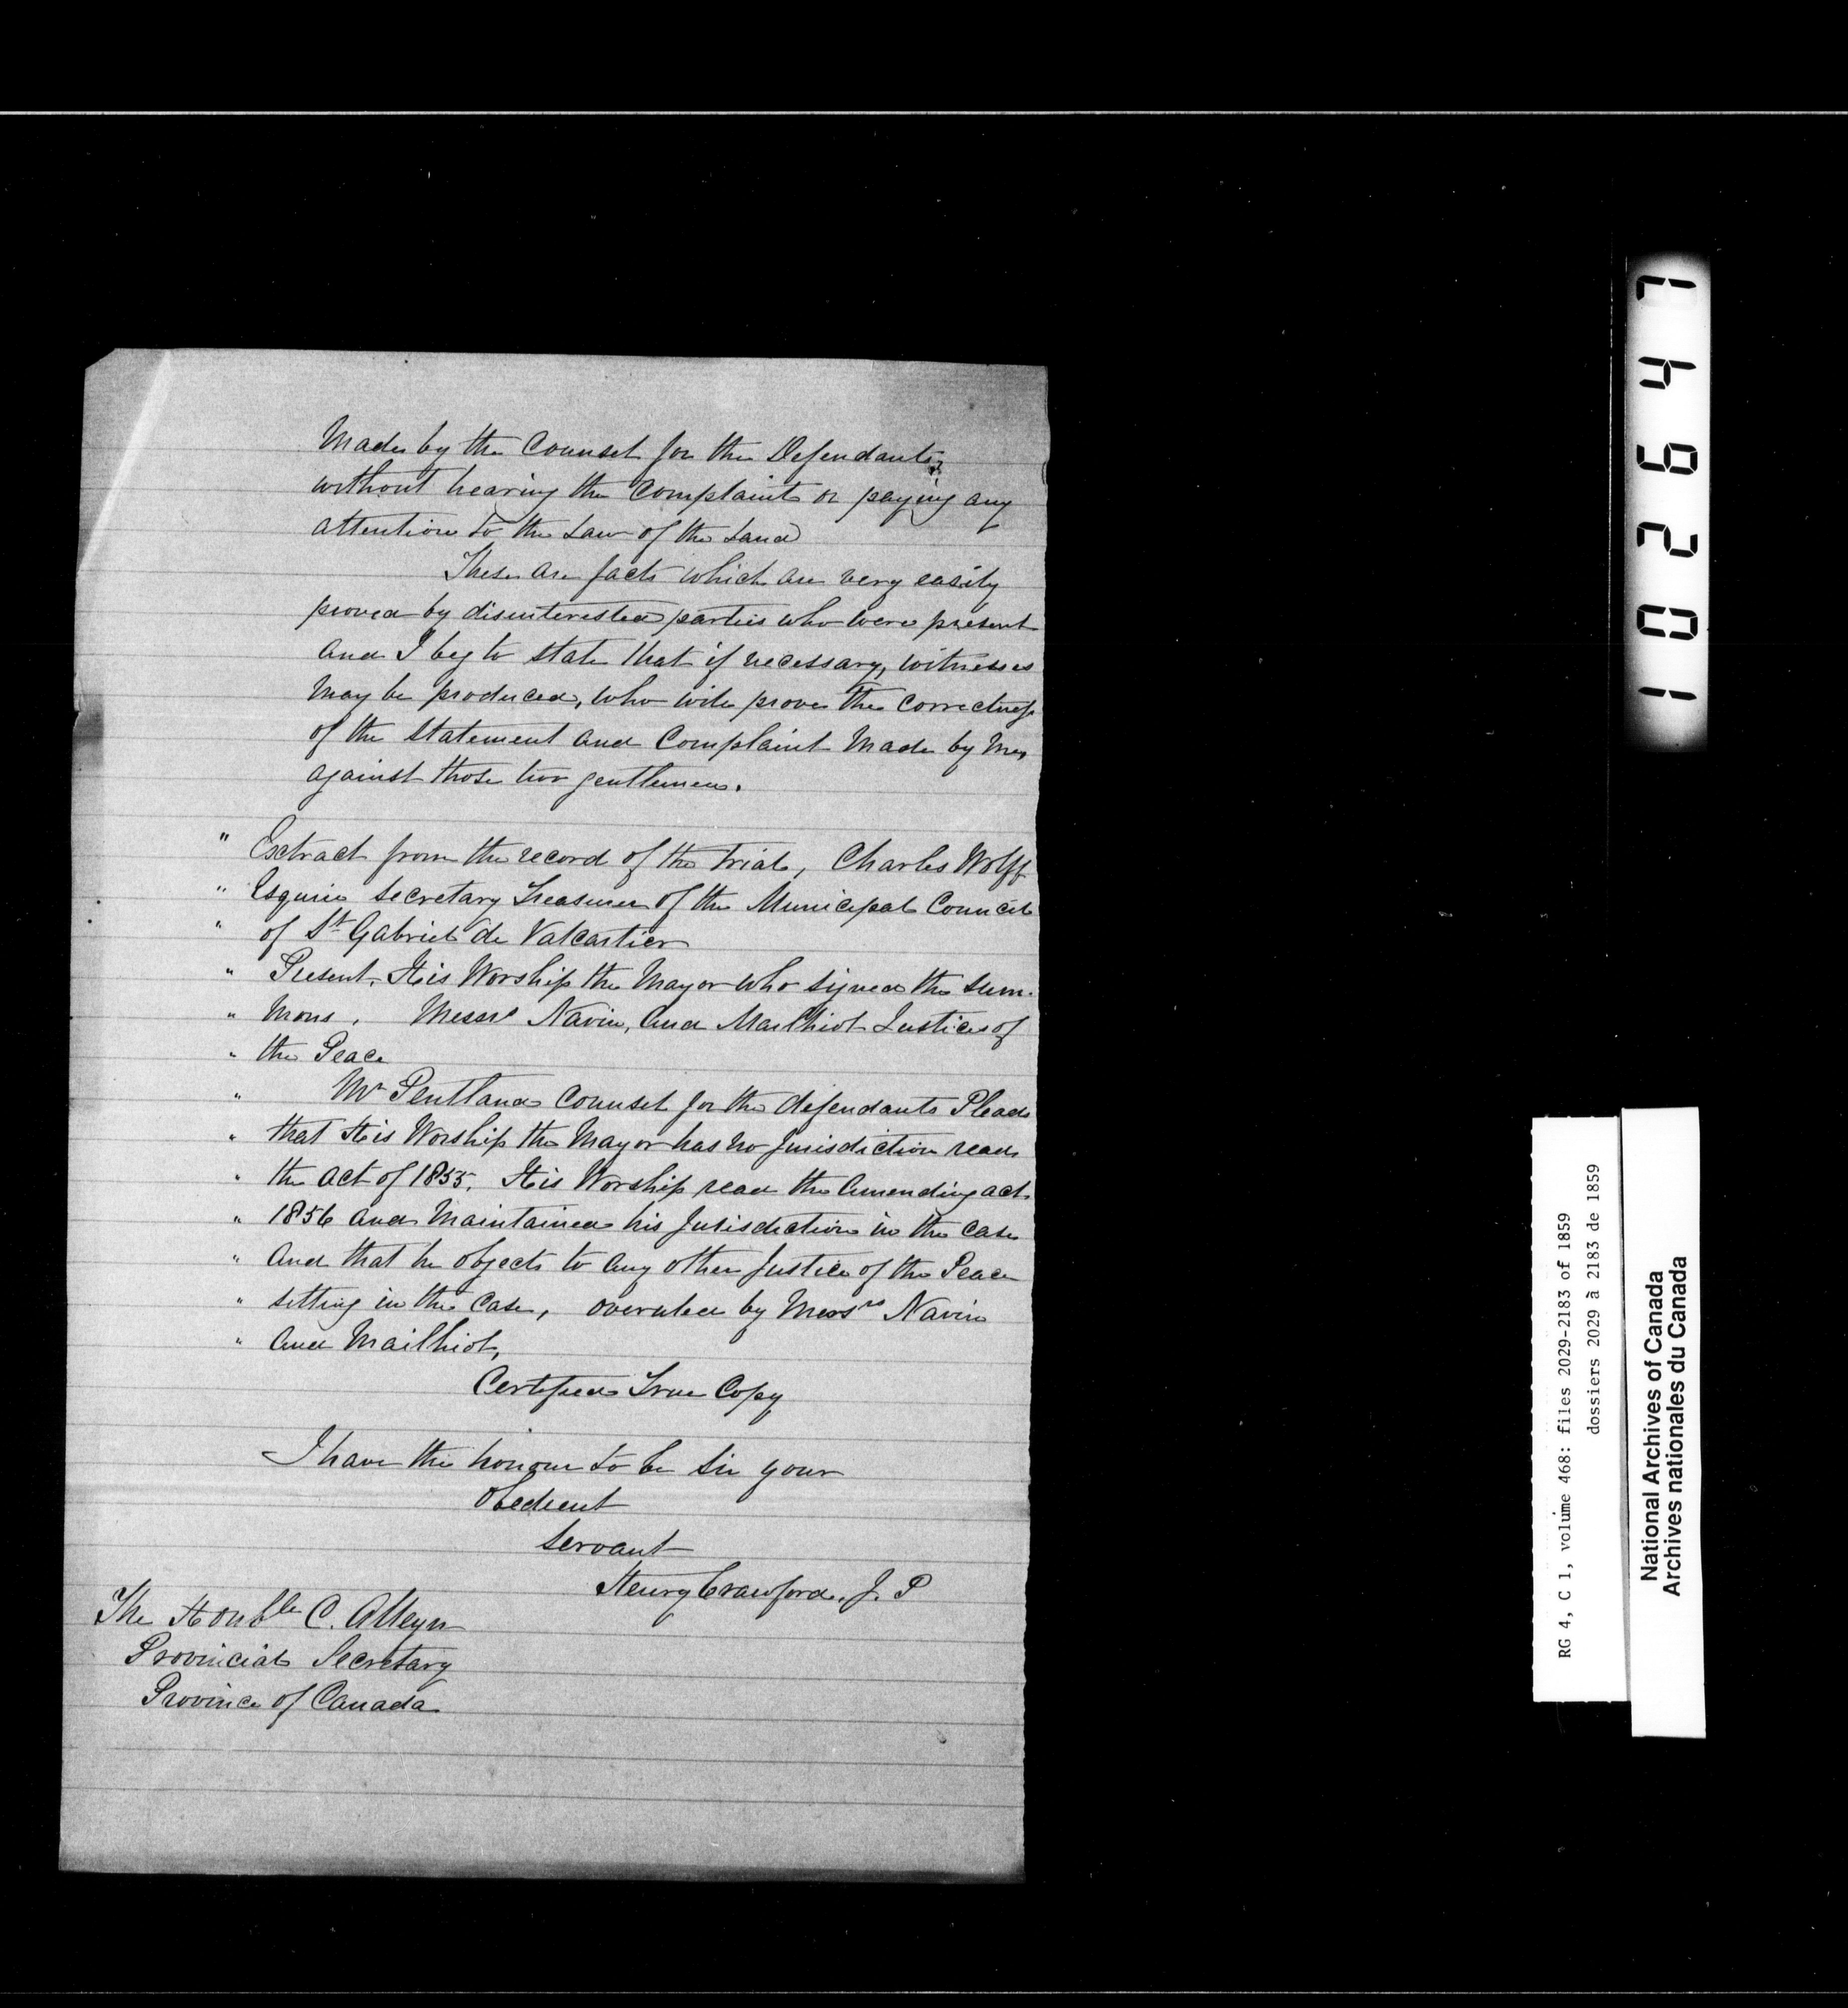 Made by the Counsel for the Defendants,
without hearing the Complaint or paying any
attention to the Law of the Land
These are facts which are very easily
proved by disinterested parties who were present
and I beg to state that if necessary, witnesses
may be produced, who will prove the correctness
of the statement and Complaint Made by me,
against those two gentlemen.
" Extract from the record of the trial, Charles Wolff
" Esquire Secretary Treasurer of the Municipal Council
" of St Gabriel de Valcartier
" Present. His Worship the Mayor who signed the Sum-
" mons. Messrs Navin, and Mailhiot Justices of
" the Peace
" Mr Pentland Counsel for the defendants Pleads
" that His Worship the Mayor has no Jurisdiction reads
" the act of 1855. His Worship read the Amending act
" 1856 and Maintained his Jurisdiction in the case
" and that he objects to any other Justice of the Peace
" sitting in the case, overuled by Messrs Navin
" and Mailhiot,
Certified True Copy
I have the honour to be Sir your
Obedient
Servant
Henry Crawford. J. P
The Honble C. Alleyn
Provincial Secretary
Province of Canada
102647
RG 4, C 1, volume 468: files 2029-2183 of 1859
dossiers 2029 à 2183 de 1859
National Archives of Canada
Archives nationales du Canada